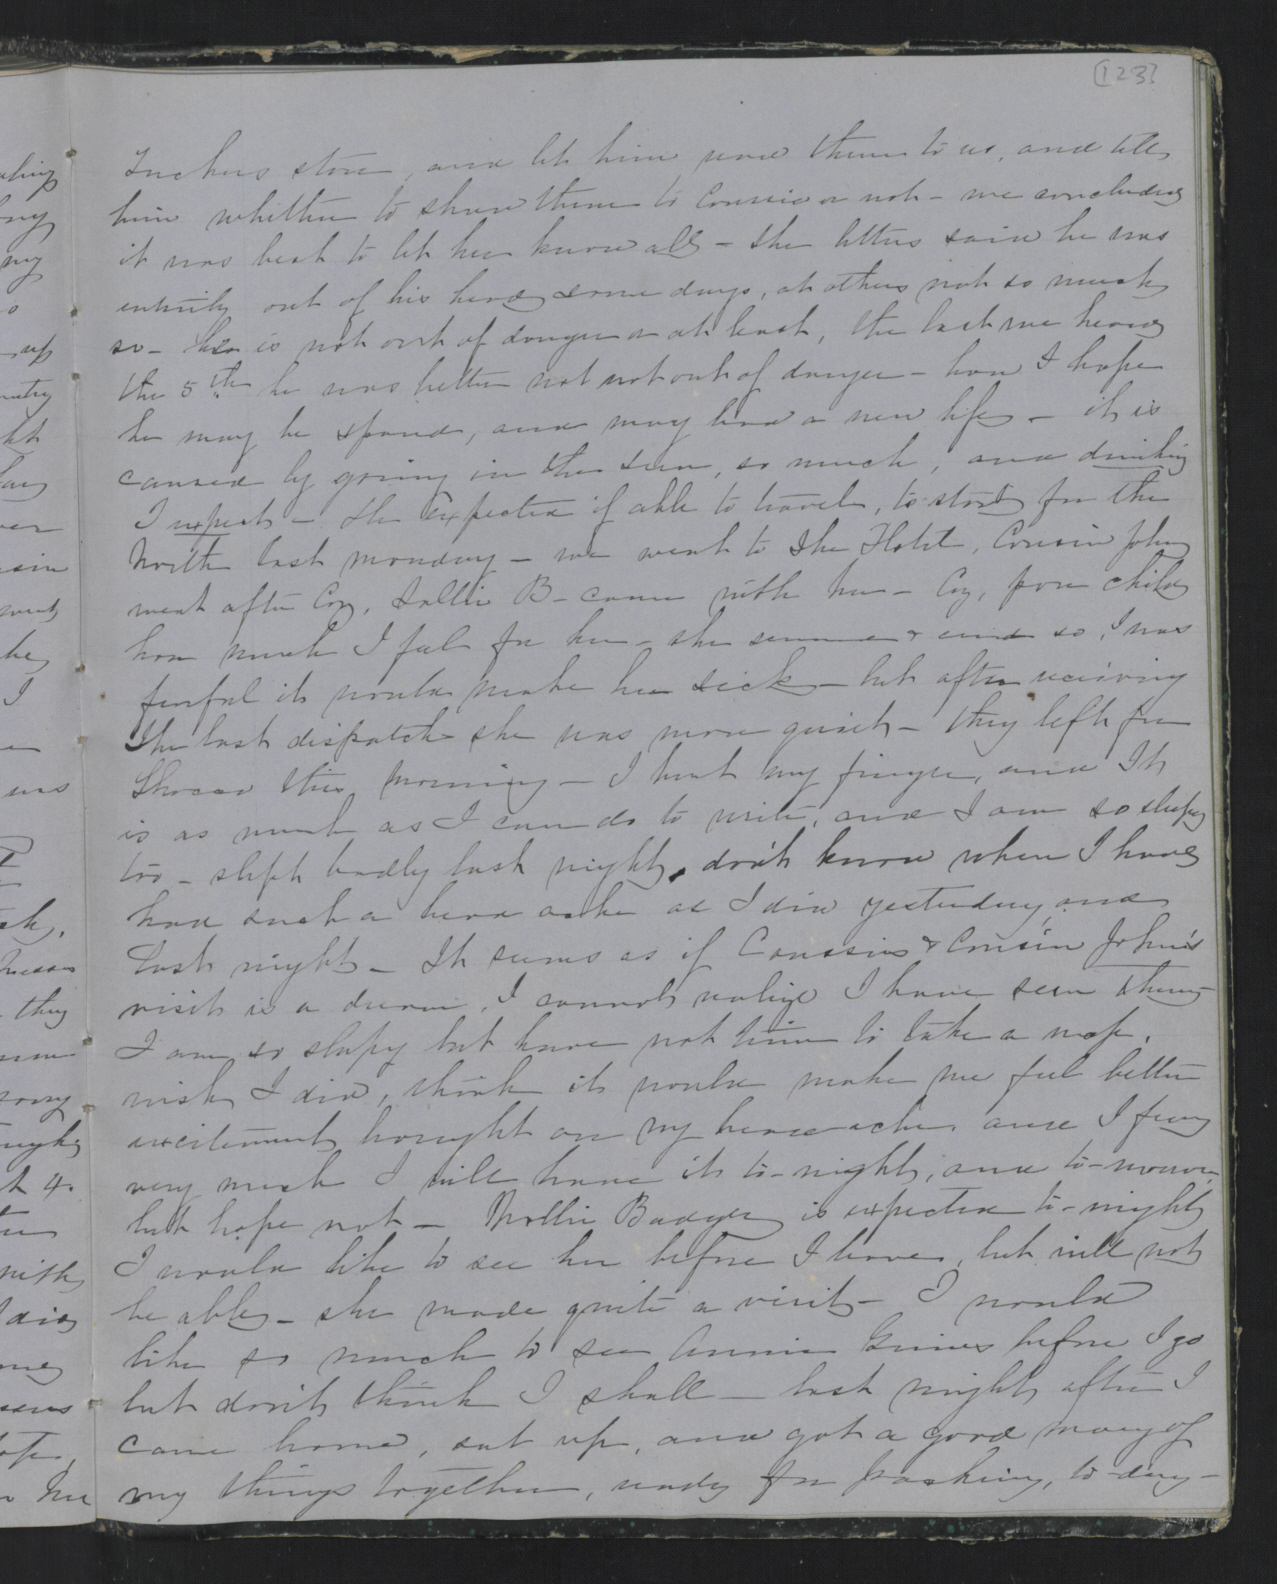 [123]
Tuckers store, and let him read them to us, and tell
him whether to show them to Cousin or not - we concluded
it was best to let her know all - the letters said he was
entirely out of his head some days, at others not so much
so - he is not out of danger or at least, the last we heard
the 5th he was better not not out of danger - how I hope
he may be spared, and may lead a new life - it is
caused by going in the sun, so much, and drinking
I expect - He expected if able to travel, to start for the
North last monday - we went to the Hotel, Cousin John
went after Coz, Sallie B - came with her - Coz, poor child
how much I feel for her - she screamed & cried so, I was
fearful it would make her sick - but after receiving
the last dispatch she was more quiet - they left for
Shocco this morning - I hurt my finger, and It
is as much as I can do to write, and I am so sleepy
too - slept badly last night, don't know when I have
had such a head ache as I did yesterday and
last night - It seems as if Coussins & Cousin John's
visit is a dream, I cannot realize I have seen them
I am so sleepy but have not time to take a nap.
wish I did, think it would make me feel better
excitement bought on my head ache, and I fear
very much I will have it to-night, and to-morrow
but hope not - Mollie Badger is expected to-night
I would like to see her before I leave, but will not
be able - she made quite a visit - I would
like so much to see Annie Grimes before I go
but don't think I shall - last night after I
came home, sat up, and got a good many of
my things together, ready for packing, to-day -